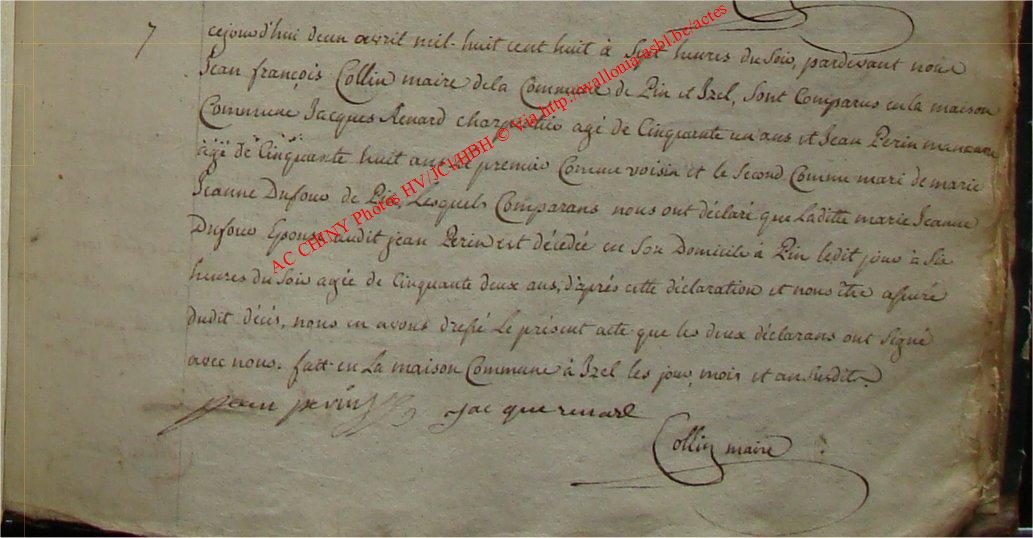 7
cejourd'hui deux avril mil-huit cent huit à Sept heures du Soir, pardevant nous
Jean françois Collin maire dela Commune de Pin et Izel, Sont Comparus en la maison
Commune Jacques Renard charpentier agé de Cinquante un ans et Jean Perin manœuvre
agé de Cinquante huit ans le premier Comme voisin et le Second Comme mari de marie
Jeanne Dufour de Pin, Lesquels Comparans nous ont déclaré que Laditte marie Jeanne
Dufour Epouse audit jean Perin est décédée en Son Domicile à Pin ledit jour à Six
heures du Soir agée de Cinquante deux ans, d'après cette déclaration et nous être assuré
dudit décès, nous en avons dressé Le présent acte que les deux déclarans ont Signé
avec nous. fait en La maison Commune à Izel les jour, mois et an Susdits.
jean perin jacque renard
Collin maire
AC CHINY Photos HV/JC14HBH © Via http://wallonia-asbl.be/actes